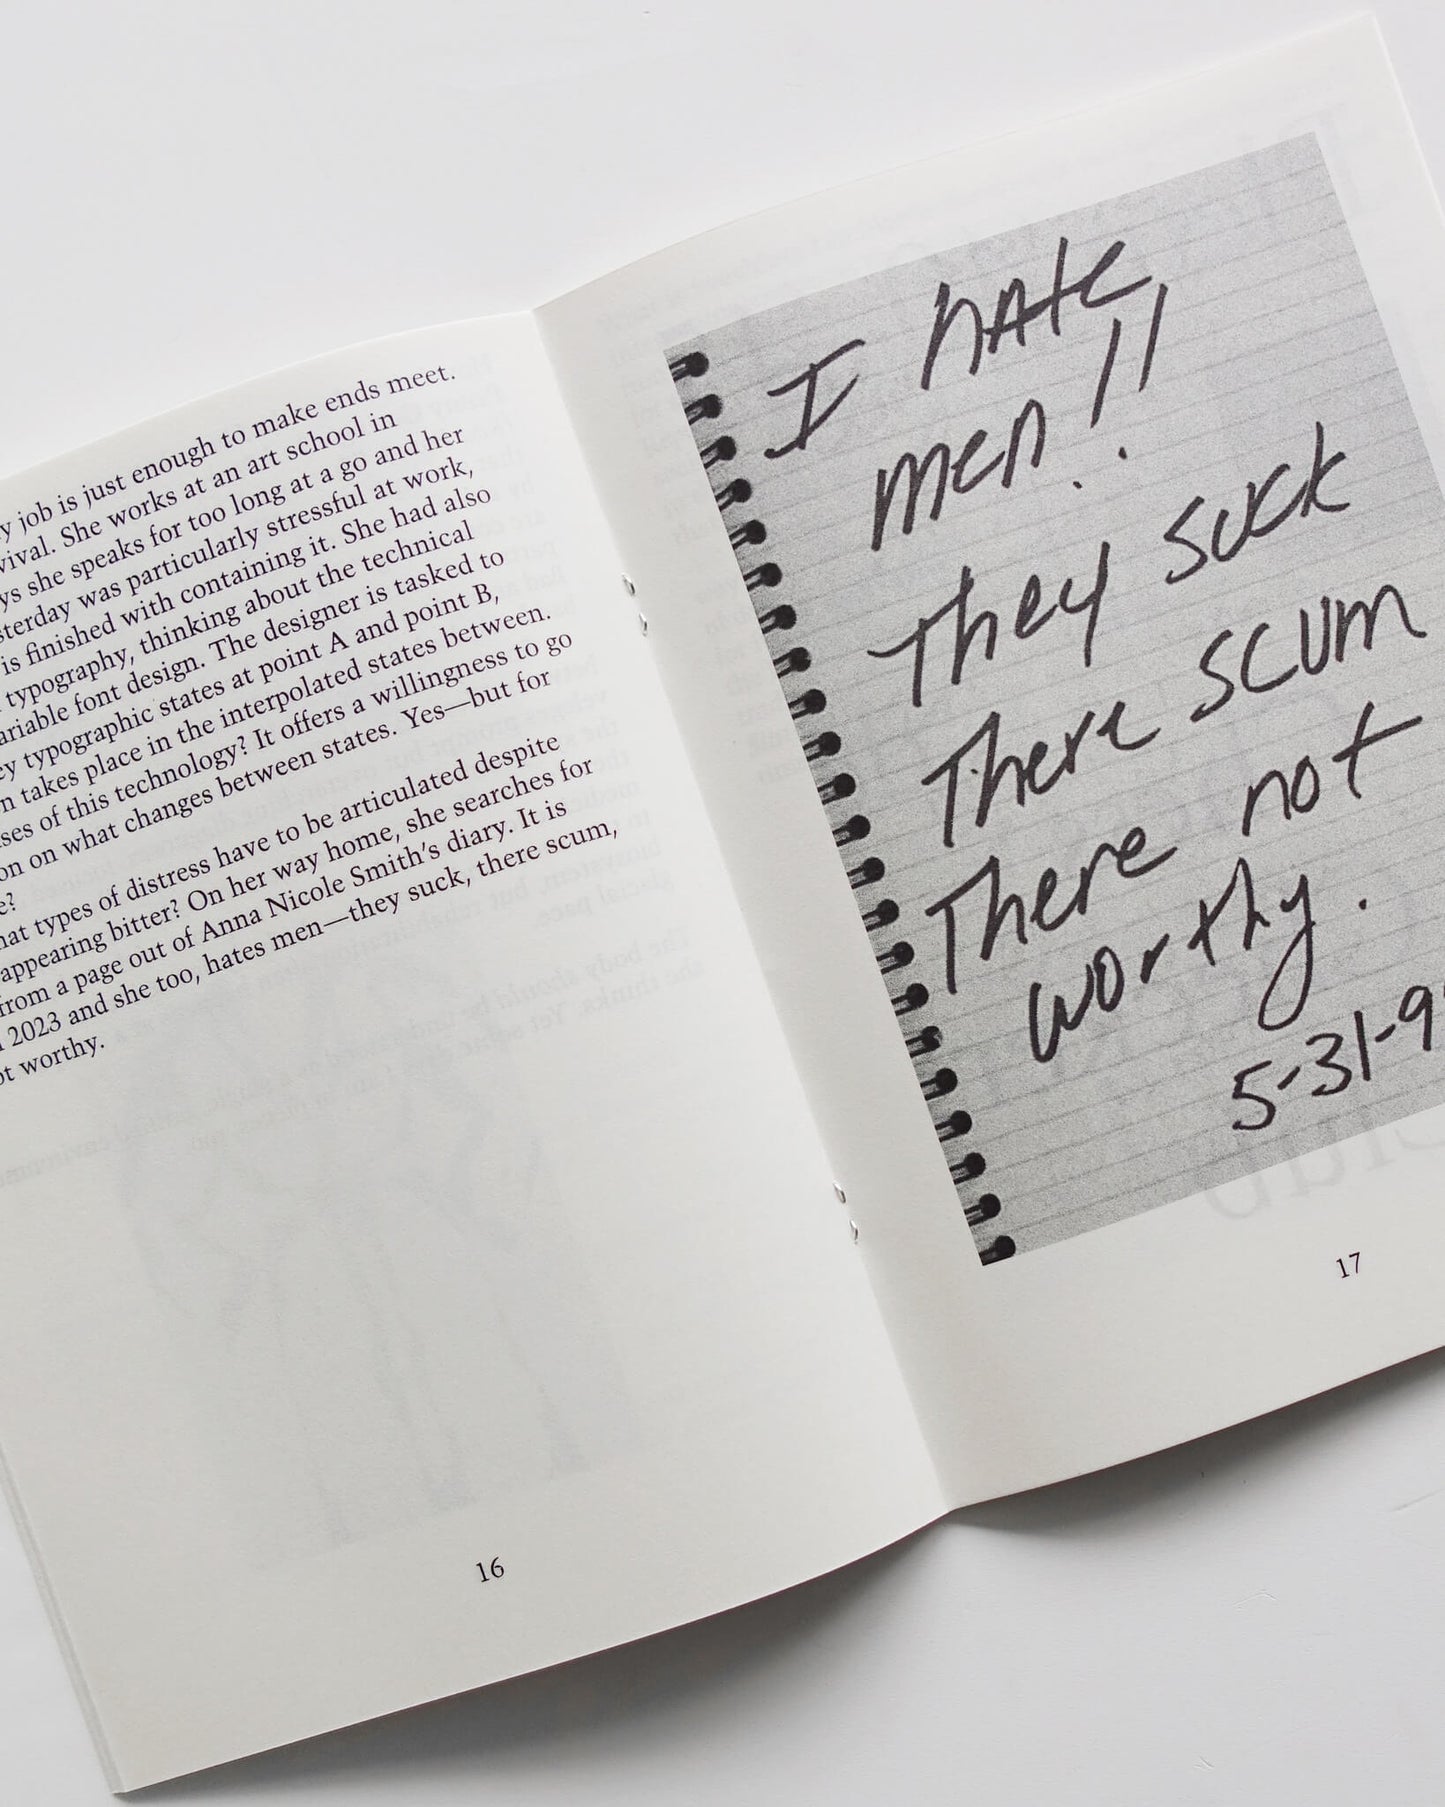 job is just enough to make ends meet.
She works at an art school in
she speaks for too long at a go and her
was particularly stressful at work,
is finished with containing it. She had also
typography, thinking about the technical
font design. The designer is tasked to
typographic states at point A and point B,
takes place in the interpolated states between.
of this technology? It offers a willingness to go
on what changes between states. Yes—but for
types of distress have to be articulated despite
appearing bitter? On her way home, she searches for
from a page out of Anna Nicole Smith's diary. It is
2023 and she too, hates men—they suck, there scum,
worthy.
16
I hate
men!!
They suck
There scum
There not
worthy.
5-31-9
17